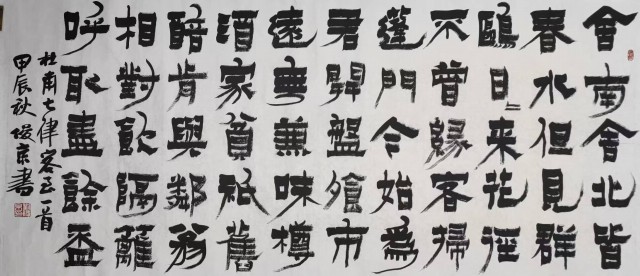 舍南舍北皆
春水但見群
鷗日〻来花徑
不曾緣客掃
蓬門今始為
君開盤飱市
遠無兼味樽
酒家貧衹舊
醅肯與鄰翁
相對飲隔籬
呼取盡餘盃
杜甫七律客至一首
甲辰秋俊京書